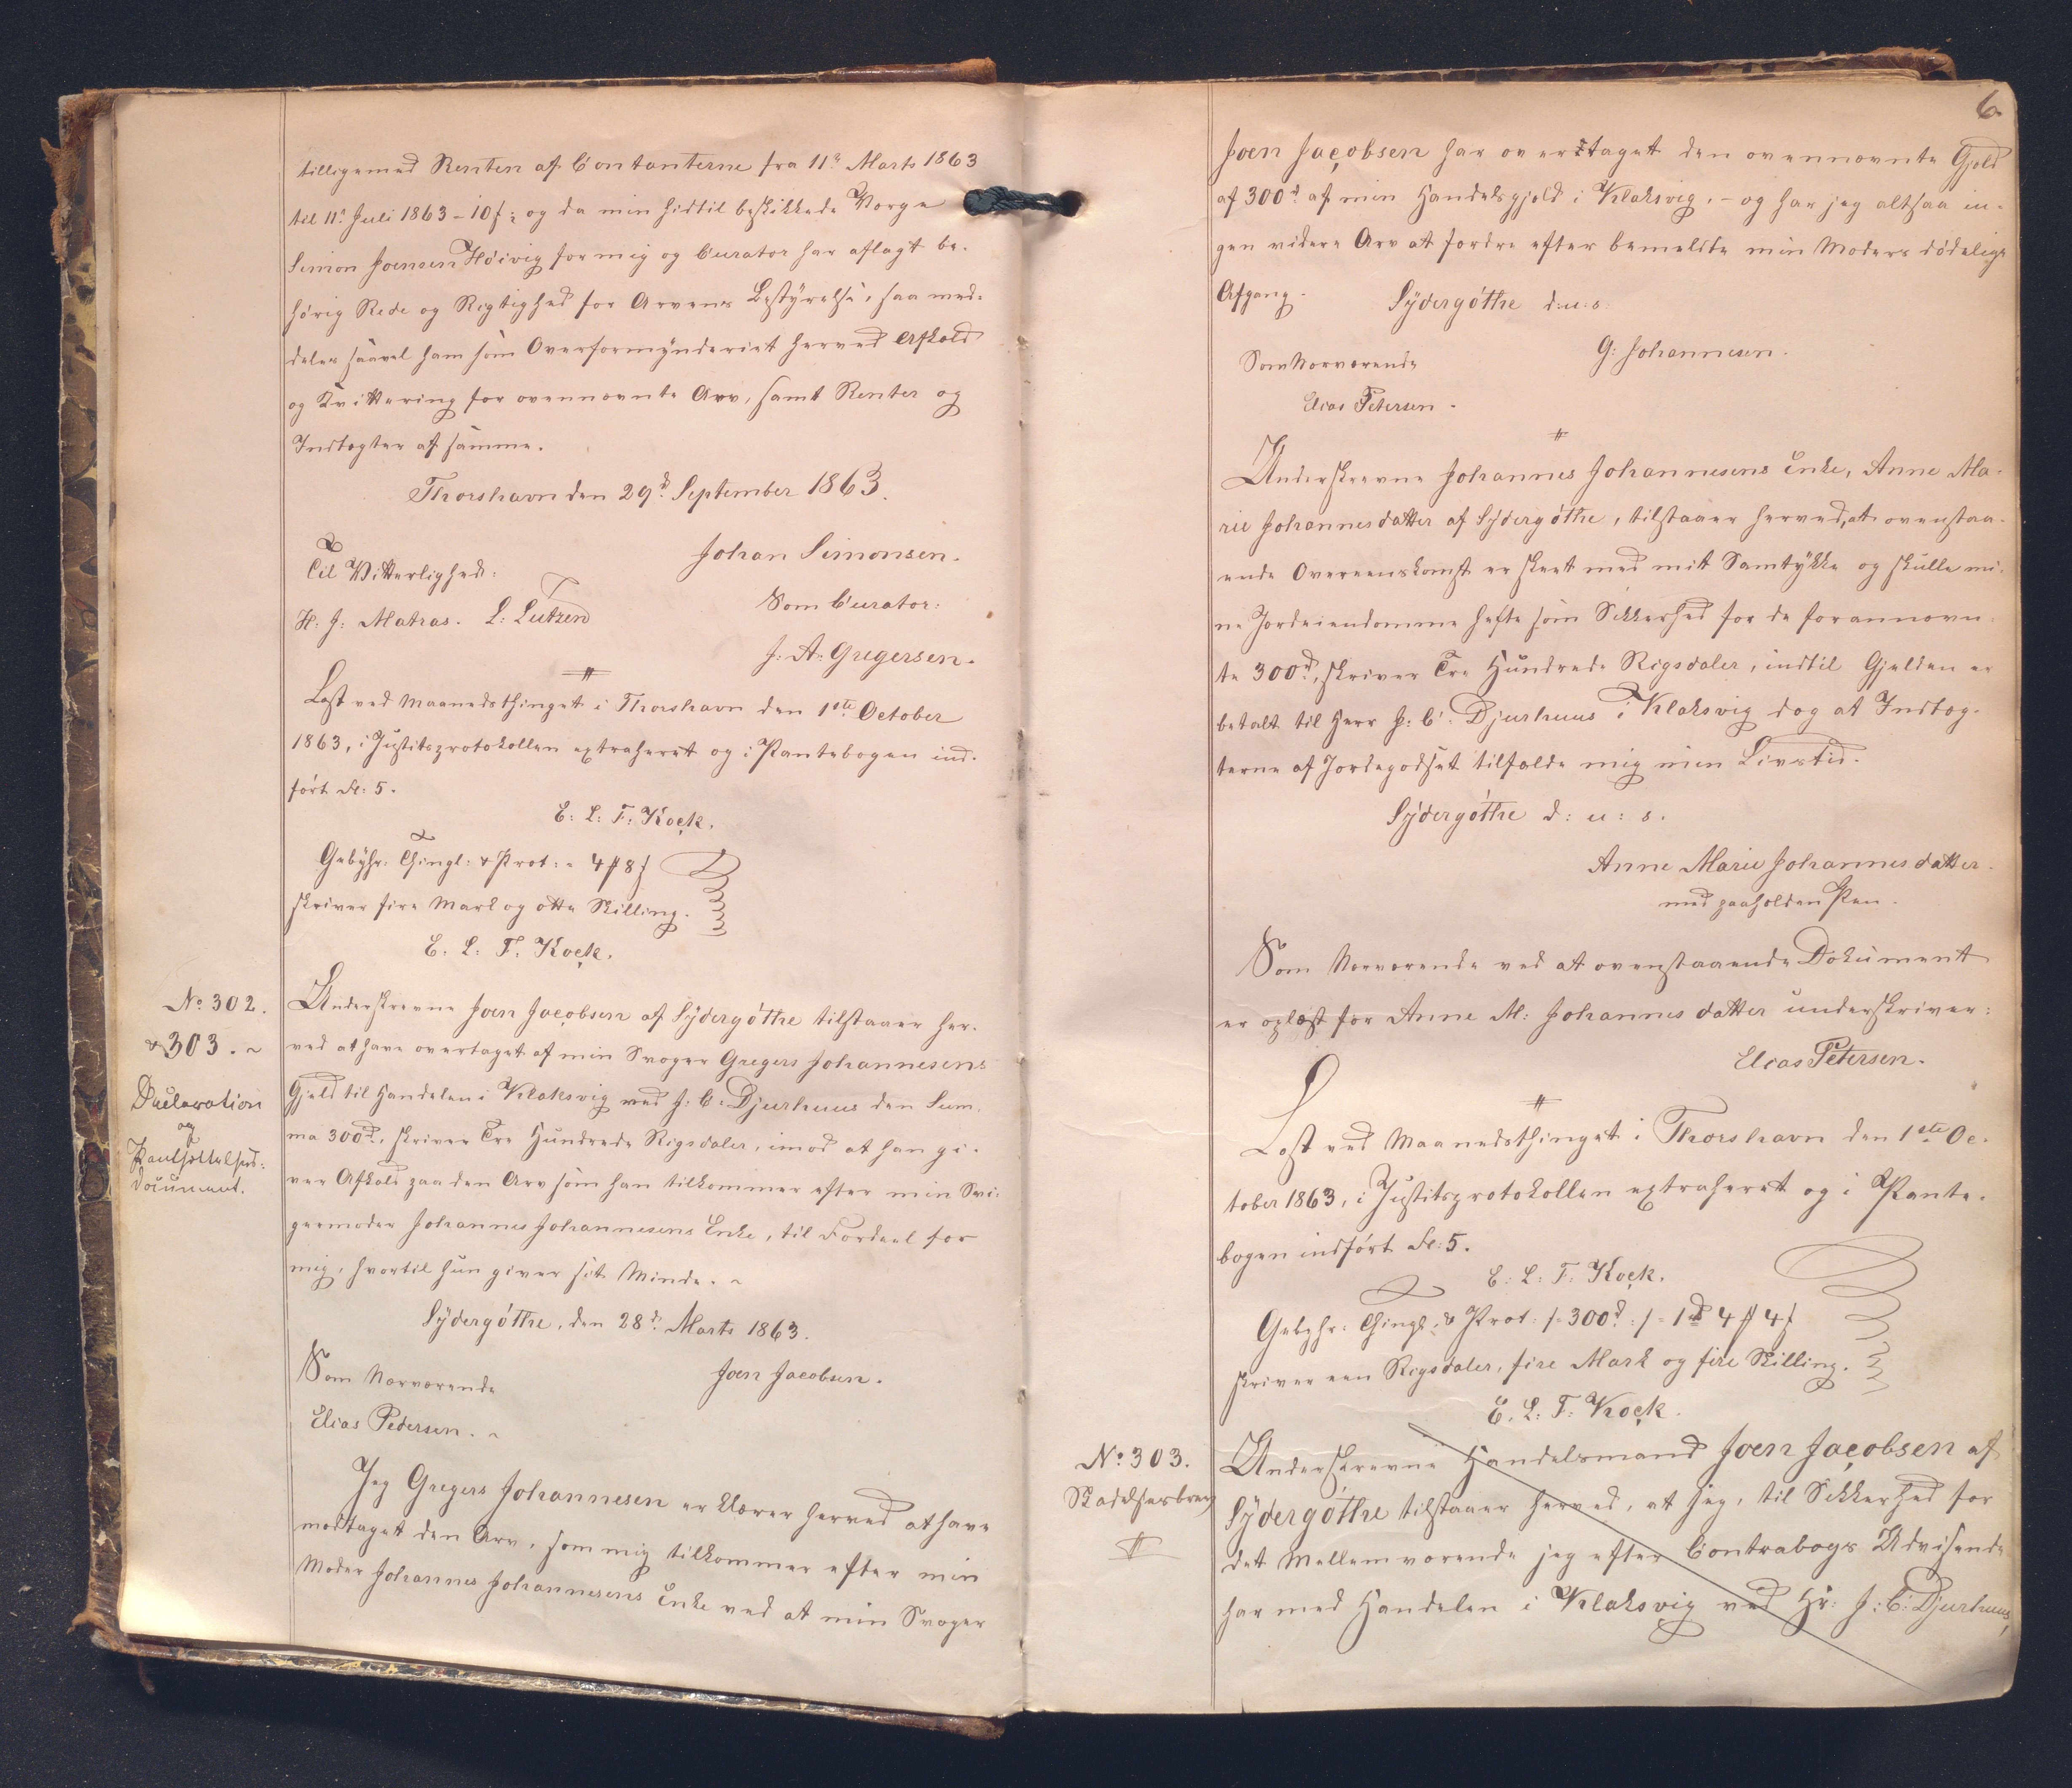 tilligemed Renten af Contanterne fra 11te Marts 1863
til 11te Juli 1863 - 10 ß; og da min hidtil beskikkede Værge
Simon Joensen Höivig for mig og Curator har aflagt be-
hørig Rede og Rigtighed for Arvens Bestyrelse, saa med-
deles saavel ham som Overformynderiet herved Afkald
og Kvittering for ovennævnte Arv, samt Renter og
Indtægter af samme.
Thorshavn den 29d September 1863.
Johan Simonsen.
Til Vitterlighed:
Som Curator:
H: J: Matras. L: Lützen
J: A: Gregersen.
Læst ved Maanedsthinget i Thorshavn den 1ste October
1863, i Justitsprotokollen extraheret og i Pantebogen ind-
ført Fol: 5.
E: L: F: Kock.
Gebyhr. Thingl: & Prot: = 4 # 8 ß
skriver fire Mark og otte Skilling.
E. L: F. Kock.
No 302.
& 303. ~
Declaration
og
Pantsættelses-
Document.
Underskrevne Joen Jacobsen af Sydergöthe tilstaaer her-
ved at have overtaget af min Svoger Gregers Johannesens
Gjeld til Handelen i Klaksvig ved J: C: Djurhuus den Sum-
ma 300d, skriver Tre Hundrede Rigsdaler, imod at han gi-
ver Afkald paa den Arv som han tilkommer efter min Svi-
germoder Johannes Johannesens Enke, til Fordeel for
mig, hvortil hun giver sit Minde. ~
Sydergöthe, den 28d Marts 1863.
Som Nærværende
Joen Jacobsen.
Elias Pedersen. ~
Jeg Gregers Johannesen erklærer herved at have
modtaget den Arv, som mig tilkommer efter min
Moder Johannes Johannesens Enke ved at min Svoger
6.
Joen Jacobsen har overtaget den ovennævnte Gjeld
af 300d af min Handelsgjeld i Klaksvig, - og har jeg altsaa in-
gen videre Arv at fordre efter bemeldte min Moders dødelige
Afgang.
Sydergöthe d: u: s:
G: Johannesen.
Som Nærværende
Elias Petersen.
Underskrevne Johannes Johannesens Enke, Anne Ma-
rie Johannesdatter af Sydergöthe, tilstaaer herved, at ovenstaa-
ende Overeenskomst er skeet med mit Samtykke og skulle mi-
ne Jordeiendomme hefte som Sikkerhed for de forannævn-
te 300d, skriver Tre Hundrede Rigsdaler, indtil Gjelden er
betalt til Herr J: C: Djurhuus i Klaksvig dog at Indtæg-
terne af Jordegodset tilfalde mig min Livstid.
Sydergöthe d: u: s.
Anne Marie Johannesdatter.
med paaholden Pen.
Som Nærværende ved at ovenstaaende Dokument
er oplæst for Anne M: Johannesdatter underskriver:
Elias Petersen.
Læst ved Maanedsthinget i Thorshavn den 1ste Oc-
tober 1863, i Justitsprotokollen extraheret og i Pante-
bogen indført Fol: 5.
E: L: F: Kock.
Gebyhr: Thingl. & Prot: /: 300d :/ = 1d 4 # 4 ß
skriver een Rigsdaler, fire Mark og fire Skilling.
E. L: F: Kock.
No 303.
Skadesbrev
Underskrevne Handelsmand Joen Jacobsen af
Sydergöthe tilstaaer herved, at jeg, til Sikkerhed for
det Mellemværende jeg efter Contrabogs Udvisende
har med Handelen i Klaksvig ved Hr: J: C: Djurhuus,